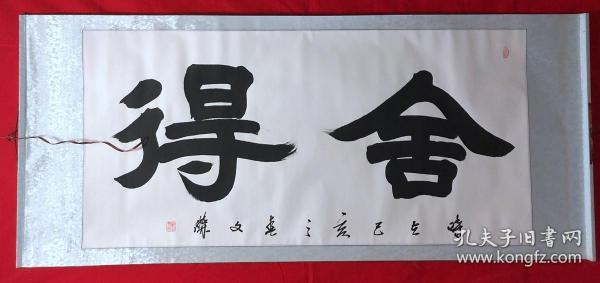 舍得
時在己亥之春文
孔夫子旧书网
www.kongfz.com